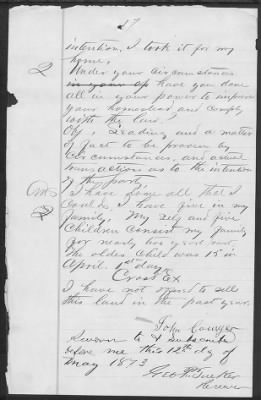 intention, I took it for my
home,
Q Under your circumstances
in your op have you done
all in your power to improve
your homestead and comply
with the law?
Obj, Leading and a matter
of fact to be proven by
circumstances, and actual
transactions as to the intention
of the party.
Ans I have done all that I
could, I have five in my
family. My self and five
children consist my family
for nearly two years past.
The oldest child was 15 in
April. 1st day
Cross Ex
Q I have not offered to sell
this land in the past year.
John
Sworn to & Subscribed
before me this 12th day of
May 1873
Geo. Tucker
Receiver